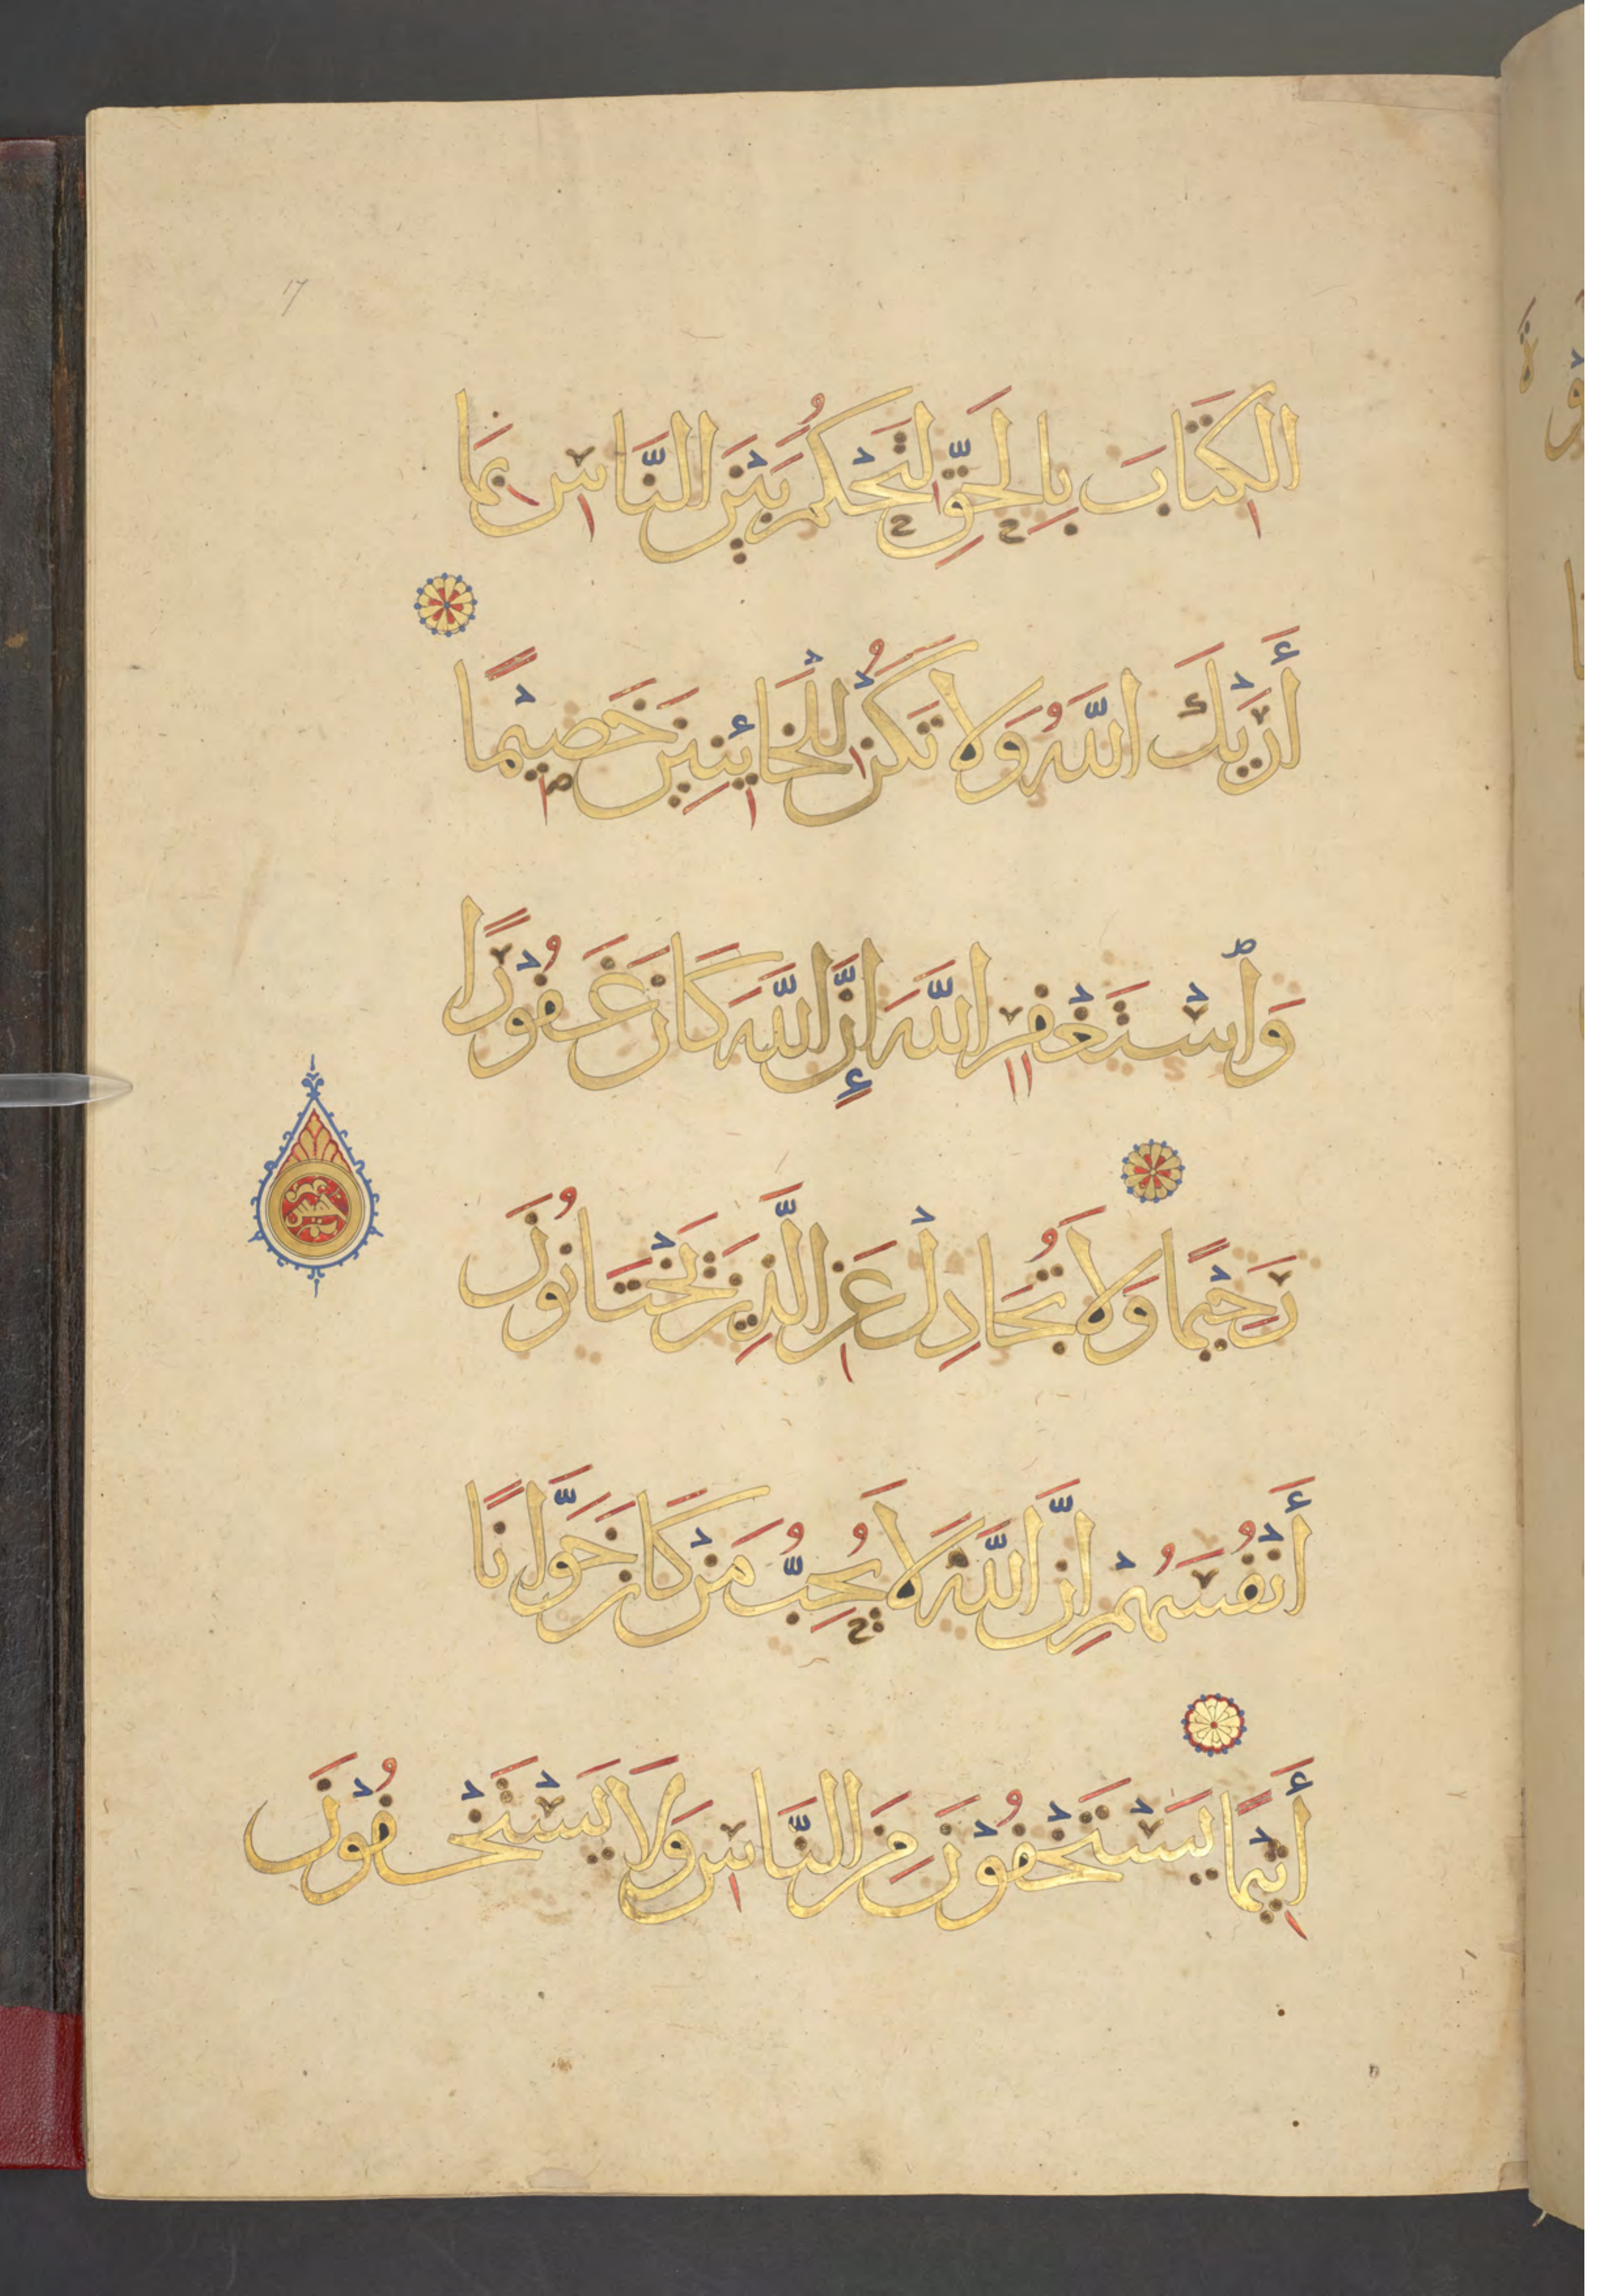 الكِتَابَ بِالحَقِّ لِتَحْكُمَ بَيْنَ النَّاسِ بِمَا
أَرَيْكَ اللَّهُ وَلَا تَكُنْ لِلْخَائِنِينَ خَصِيْمًا
وَاسْتَغْفِرِ اللَّهَ إِنَّ اللَّهَ كَانَ غَفُوْرًا
رَحِيْمًا وَلَا تُجَادِلْ عَنِ الَّذِينَ يَخْتَانُونَ
أَنْفُسَهُمْ إِنَّ اللَّهَ لَا يُحِبُّ مَنْ كَانَ خَوَّانًا
أَثِيْمًا يَسْتَخْفُوْنَ مِنَ النَّاسِ وَلَا يَسْتَخْفُوْنَ
17